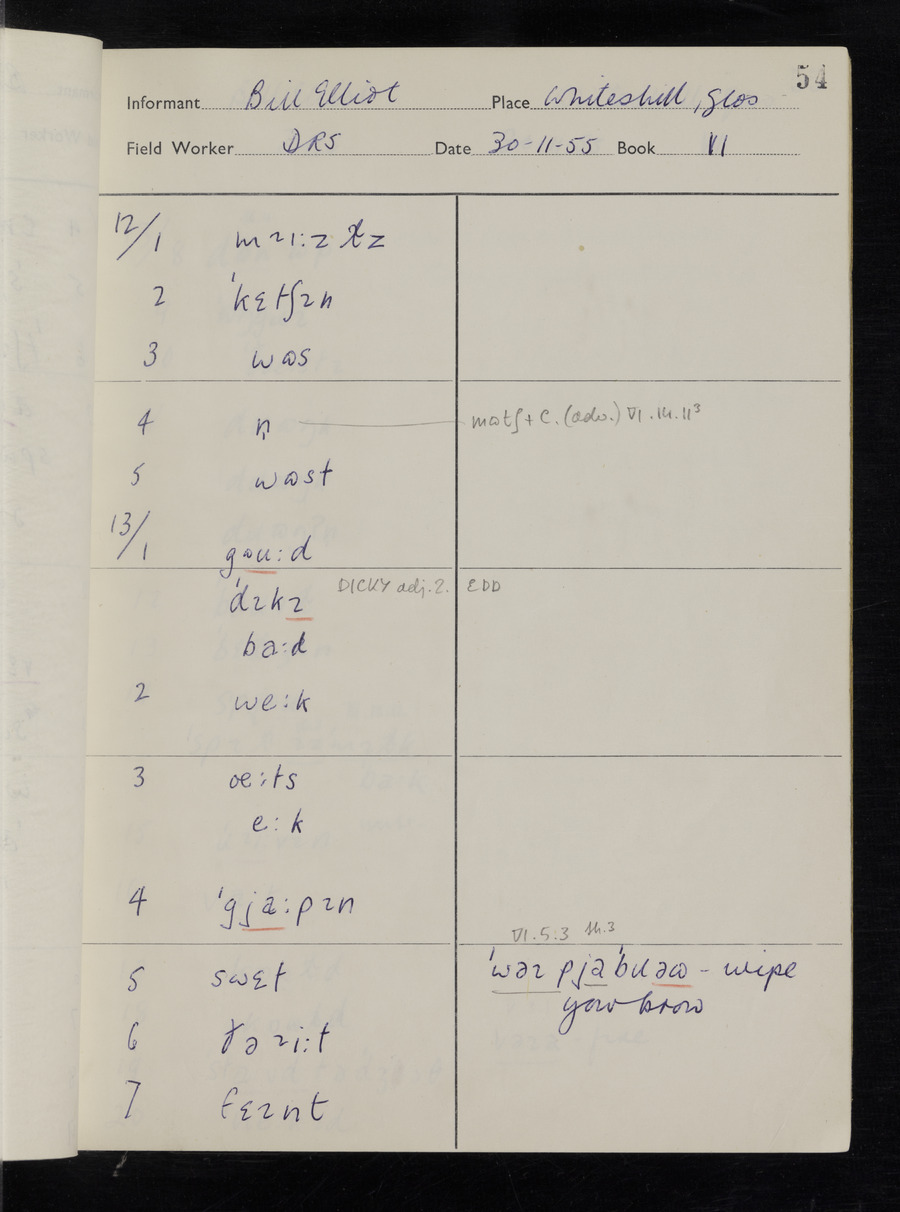 54
Informant Bill Elliot Place Whiteshill, Glos
Field Worker DRS Date 30-11-55 Book VI
12/1
2 ˈkɛtʃɪn
3 wɒs
4 n̩ VI.14.11³
5 wɒst
13/1 gɒu:d
ˈdɪkɪ DICKY adj. 2. EDD
ba:d
2 we:k
3 œ:ts
e:k
4 ˈgja:pɪn
VI.5.3 14.3
5 swɛt
- wipe
your brow
6
7 fɛɪnt